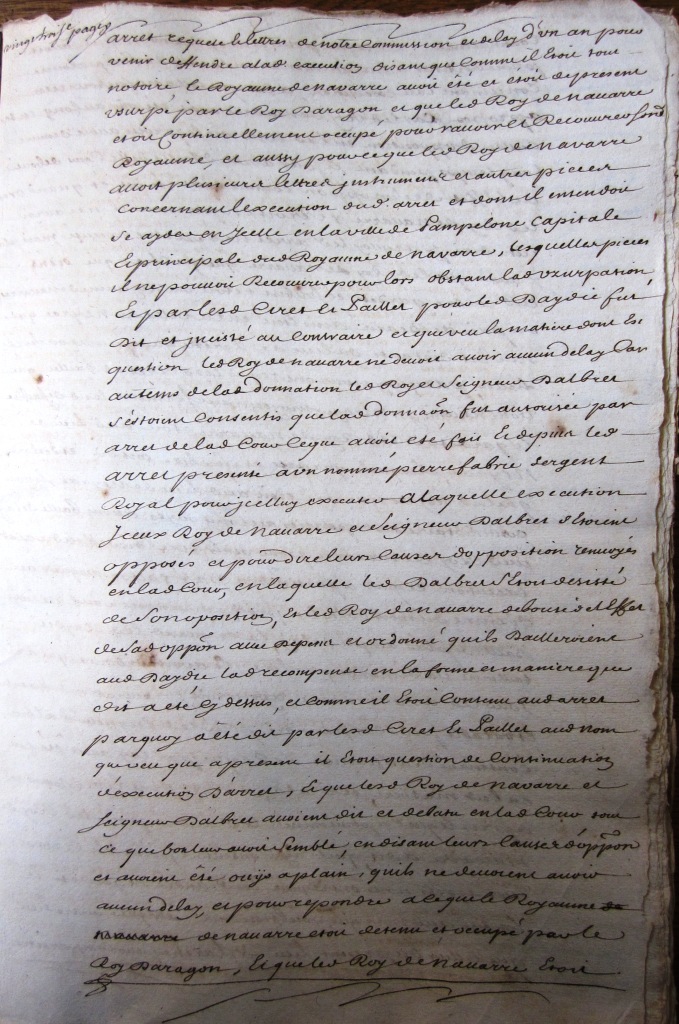 vingt troise page
arret requete lettres de notre Commission et delay d'un an pour
venir deffendre a lad. execution disant que Comme il Etoit tout
notoire le Royaume de navarre avoit été et etoit de present
usurpé par le Roy Daragon et que led Roy de navarre
etoit Continuellement occupé pour ravoir et Recouvrer sond
Royaume, et aussy pour ce que led Roy de navarre
avoit plusieurs lettres, jnstrumens et autres pieces
Concernant l'execution dud. arret et dont il entendoit
se ayder en Jcelle en la ville de Pampelone Capitale
Et principale dud Royaume de navarre, lesquelles pieces
il ne pouvoit Recouvrer pour lors obstant lad uzurpation
Et par lesd Ciret et Paillet pour led Daydie fut
Dit et jncisté au Contraire et que veu la matiere dont Est
question led Roy de navarre ne devoit avoir aucun delay Car
au tems de lad donnation led Roy et Seigneur Dalbret
s'estoient Consentis que lad donnaon fut autorisée par
arret de lad Cour Ce que avoit été fait Et depuis led
arret presenté a un nommé pierre fabrie sergent
Royal pour jcelluy executer a laquelle execution
Jceux Roy de navarre et Seigneur Dalbret s'Etoient
opposés et pour dire leurs Causes d'opposition renvoyés
en lad Cour, en laquelle led Dalbret s'Etoit desisté
de son oposition, Et led Roy de navarre debouté de l'Effet
de sad oppon avec Depens et ordonné quils Bailleroient
aud Daydie lad recompense en la forme et maniere que
dit a été Cy dessus, et Comme il Etoit Contenu aud arret
parquoy a été dit par lesd Ciret Et Paillet aud nom
que veu que a present il Etoit question de Continuation
d'execution D'arret, Et que lesd Roy de navarre et
Seigneur Dalbret avoient dit et debatu en lad Cour tout
Ce que bon leur avoit Semblé, en disant leurs Causes d'oppon
et avoient été ouys a plain, quils ne devoient avoir
aucun delay, et pour repondre a ce que le Royaume de
navarre de navarre etoit detenu et occupé par le
Roy Daragon, Et que led Roy de navarre Etoit